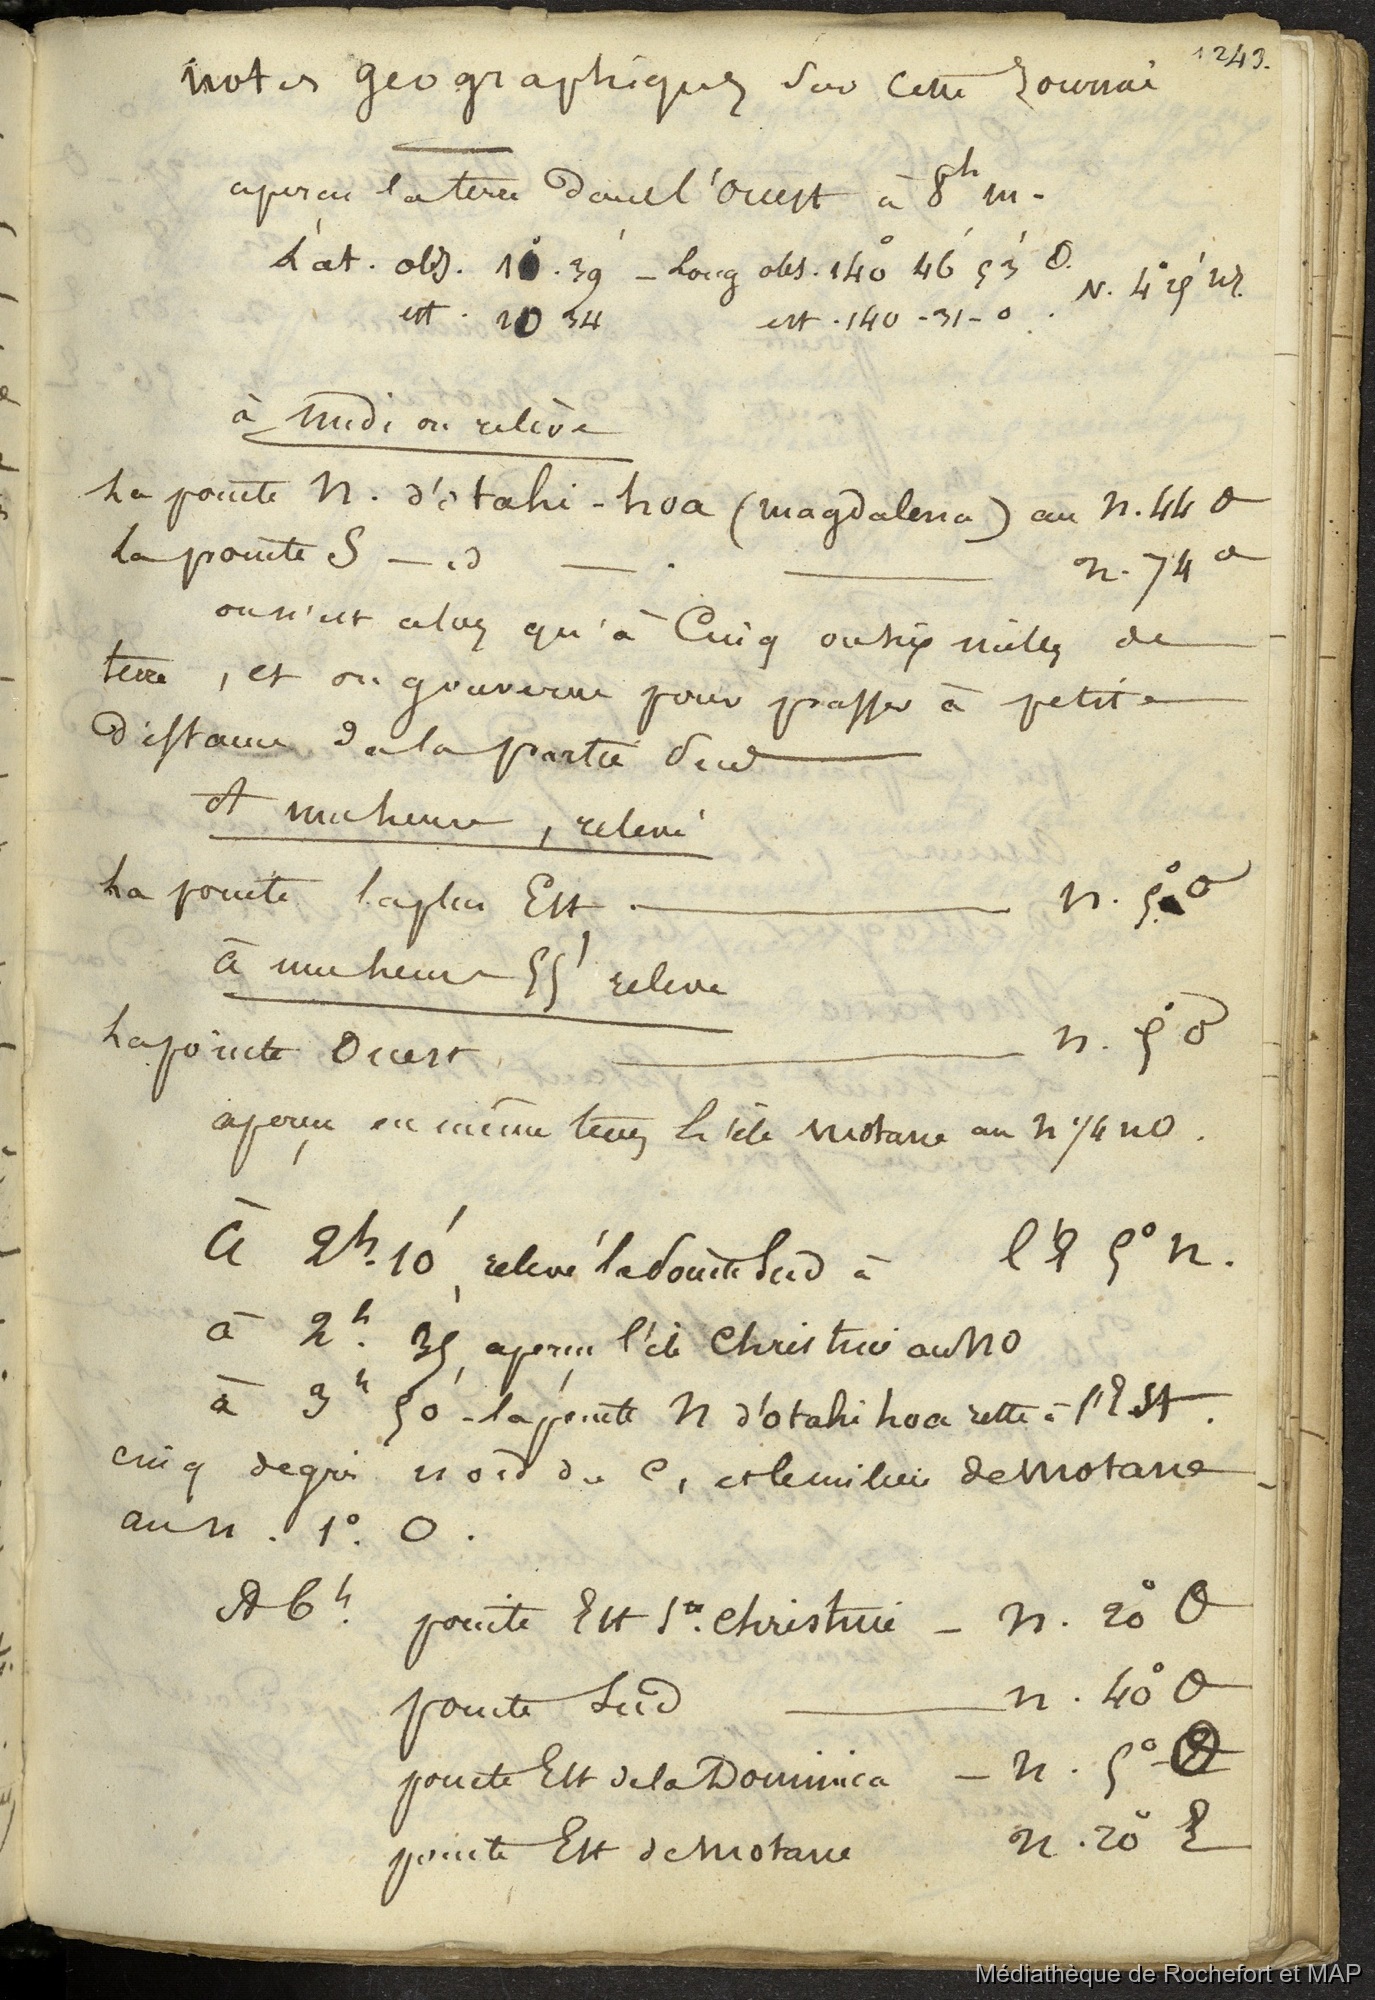 1243.
notes geographiques sur cette Journée
aperçu la terre dans l'ouest à 8h m.
Lat. obs. 10°. 39' - Long obs. 140° 46' 53" O. N. 4° 25'
est. 10 34 est. 140 - 31 - 0.
à midi on relève
La pointe N. d'otahi-hoa (magdalena) au N. 44 O
La pointe S — id — . — N. 74 O
on n'est alors qu'à Cinq ou six milles de
terre, et on gouverne pour passer à petite
distance de la partie Sud
A une heure, relevé
La pointe la plus Est . — N. 5° O
à une heure 55' releve
La pointe Ouest — N. 5° O
aperçu en même tems L'ile motane au N 1/4 NO.
à 2h. 10', relevé la pointe Sud à l'E 5° N.
à 2h. 35', aperçu l'ile Christine au NO
à 3h 50' - la pointe N d'otahi hoa reste à l'Est.
cinq degrés nord du C, et le milieu de Motane
au N. 1°. O.
A 6h. pointe Est Ste. Christine - N. 20° O
pointe Sud — N. 40° O
pointe Est de la Dominica - N. 5° O
pointe Est de Motane N. 20° E
Médiathèque de Rochefort et MAP